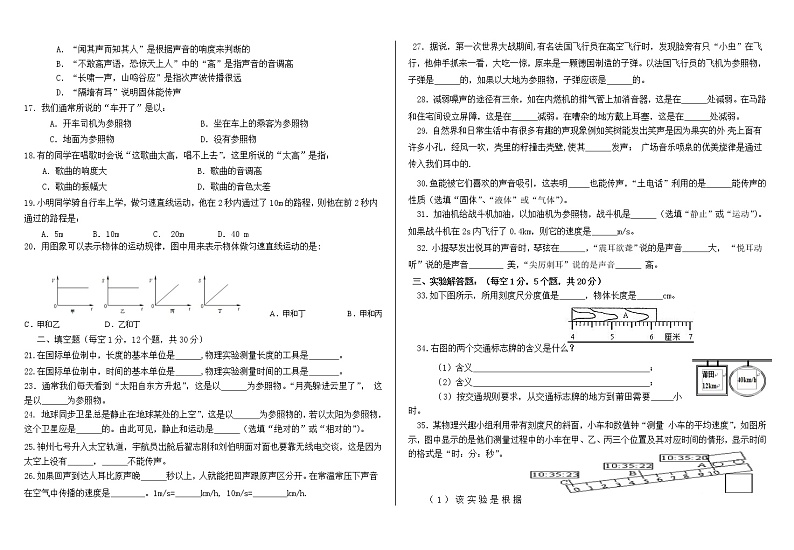 A. “闻其声而知其人”是根据声音的响度来判断的
B. “不敢高声语，恐惊天上人”中的“高”是指声音的音调高
C. “长啸一声，山鸣谷应”是指次声波传播很远
D. “隔墙有耳”说明固体能传声
17. 我们通常所说的“车开了”是以:
A. 开车司机为参照物 B. 坐在车上的乘客为参照物
C. 地面为参照物 D. 没有参照物
18. 有的同学在唱歌时会说“这歌曲太高，唱不上去”，这里所说的“太高”是指:
A. 歌曲的响度大 B. 歌曲的音调高
C. 歌曲的振幅大 D. 歌曲的音色太差
19. 小明同学骑自行车上学，做匀速直线运动，他在2秒内通过了10m的路程，则他在前2秒内
通过的路程是:
A. 5m B. 10m C. 20m D. 40 m
20. 用图象可以表示物体的运动规律，图中用来表示物体做匀速直线运动的是:
甲 乙 丙 丁
A. 甲和丁 B. 甲和丙
C. 甲和乙 D. 乙和丁
二、填空题（每空1分，12个题，共30分）
21. 在国际单位制中，长度的基本单位是______,物理实验测量长度的工具是_______。
22. 在国际单位制中，时间的基本单位是______,物理实验测量时间的工具是_______。
23. 通常我们每天看到“太阳自东方升起”，这是以______为参照物。“月亮躲进云里了”， 这
是以______为参照物。
24. 地球同步卫星总是静止在地球某处的上空”，这是以______为参照物的，若以太阳为参照物，
这个卫星应是______的。由此可见，静止和运动是______（选填“绝对的”或“相对的”）。
25. 神州七号升入太空轨道，宇航员出舱后翟志刚和刘伯明面对面也要靠无线电交谈，这是因为
太空上没有______，______不能传声。
26. 如果回声到达人耳比原声晚______秒以上，人就能把回声跟原声区分开。在常温常压下声音
在空气中传播的速度是________。1m/s=______km/h, 10m/s=________km/h.
27. 据说，第一次世界大战期间,有名法国飞行员在高空飞行时，发现脸旁有只“小虫”在飞
行，他伸手抓来一看，大吃一惊，原来是一颗德国制造的子弹。以法国飞行员的飞机为参照物，
子弹是______的，如果以大地为参照物，子弹应该是______的。
28. 减弱噪声的途径有三条，如在内燃机的排气管上加消音器，这是在______处减弱。在马路
和住宅间设立屏障，这是在______减弱。在嘈杂的地方戴上耳塞，这是在______处减弱。
29. 自然界和日常生活中有很多有趣的声现象例如笑树能发出笑声是因为果实的外 壳上面有
许多小孔，经风一吹，壳里的籽撞击壳壁,使其______发声； 广场音乐喷泉的优美旋律是通过
传入我们耳中的.
30. 鱼能被它们喜欢的声音吸引，这表明_____也能传声，“土电话”利用的是______能传声的
性质（选填“固体”、“液体”或“气体”）。
31. 加油机给战斗机加油，以加油机为参照物，战斗机是______（选填“静止”或“运动”）。
如果战斗机在2s内飞行了0.4km，则它的速度是______m/s。
32. 小提琴发出悦耳的声音时，琴弦在______，“震耳欲聋”说的是声音______大， “悦耳动
听”说的是声音________ 美，“尖厉刺耳”说的是声音______ 高。
三、实验解答题:（每空1分，5个题，共20分）
33. 如下图所示，所用刻度尺分度值是______，物体长度是______cm。
4 5 6 厘米 7
34. 右图的两个交通标志牌的含义是什么？
（1）含义______;
（2）含义______;
（3）按交通规则要求，从交通标志牌的地方到莆田需要_____小
时。
莆田
12km
40km/h
35. 某物理兴趣小组利用带有刻度尺的斜面，小车和数值钟“测量 小车的平均速度”，如图所
示，图中显示的是他们测量过程中的小车在甲、乙、丙三个位置及其对应时间的情形，显示时间
的格式是“时：分：秒”。
10:35:20
10:35:22
10:35:23
A
B
C
（1）该实验是根据